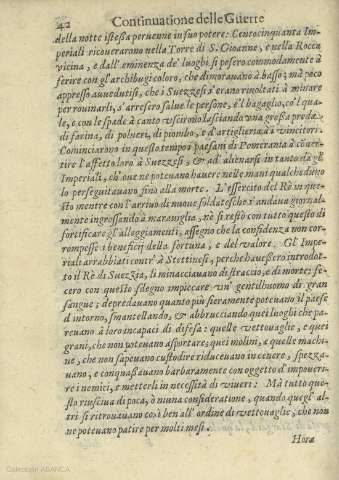 42 Continuatione delle Guerre
della notte istessa peruenne in suo potere: Centocinquanta Im-
periali ricouerarono nella Torre di S. Gioanne, e nella Rocca
vicina, e dall'eminenza de' luoghi si posero commodamente à
ferire con gl'archibugi coloro, che dimorauano à basso; mà poco
appresso auuedutisi, che i Suezzesi s'erano riuoltati à minare
per rouinarli, s'arresero salue le persone, e'l bagaglio, co'l qua-
le, e con le spade à canto vscirono lasciando vna grossa preda
di farina, di polueri, di piombo, e d'artiglieria à vincitori.
Cominciarono in questo tempo i paesani di Pomerania à conuer-
tire l'affetto loro à Suezzesi, & ad' alienarsi in tanto da gl'
Imperiali, ch'oue ne poteuano hauere nelle mani qualcheduno
lo perseguitauano sino alla morte. L'essercito del Rè in que-
sto mentre con l'arriuo di nuoue soldatesche s'andaua giornal-
mente ingrossando à marauiglia, nè si restò con tutto questo di
fortificare gl'alloggiamenti, assegno che la confidenza non cor-
rompesse i beneficij della fortuna, e del valore. Gl'Impe-
riali arrabbiati contr' à Stettinesi, perche hauessero introdot-
to il Rè di Suezzia, li minacciauano di straccio, e di morte: fe-
cero con questo sdegno impiccare vn' gentilhuomo di gran
sangue; depredauano quanto più fieramente poteuano il paese
d'intorno, smantellando, & abbrucciando quei luoghi che pa-
reuano à loro incapaci di difesa: quelle vettouaglie, e quei
grani, che non poteuano asportare; quei molini, e quelle machi-
ne, che non sapeuano custodire riduceuano in cenere, spezza-
uano, e conquassauano barbaramente con oggetto d'impoueri-
re i nemici, e metterli in necessità di viueri: Mà tutto que-
sto riusciua di poca, ò niuna consideratione, quando quegl' al-
tri si ritrouauano così ben all'ordine di vettouaglie, che non
ne poteuano patire per molti mesi.
Hora
Colección ABANCA